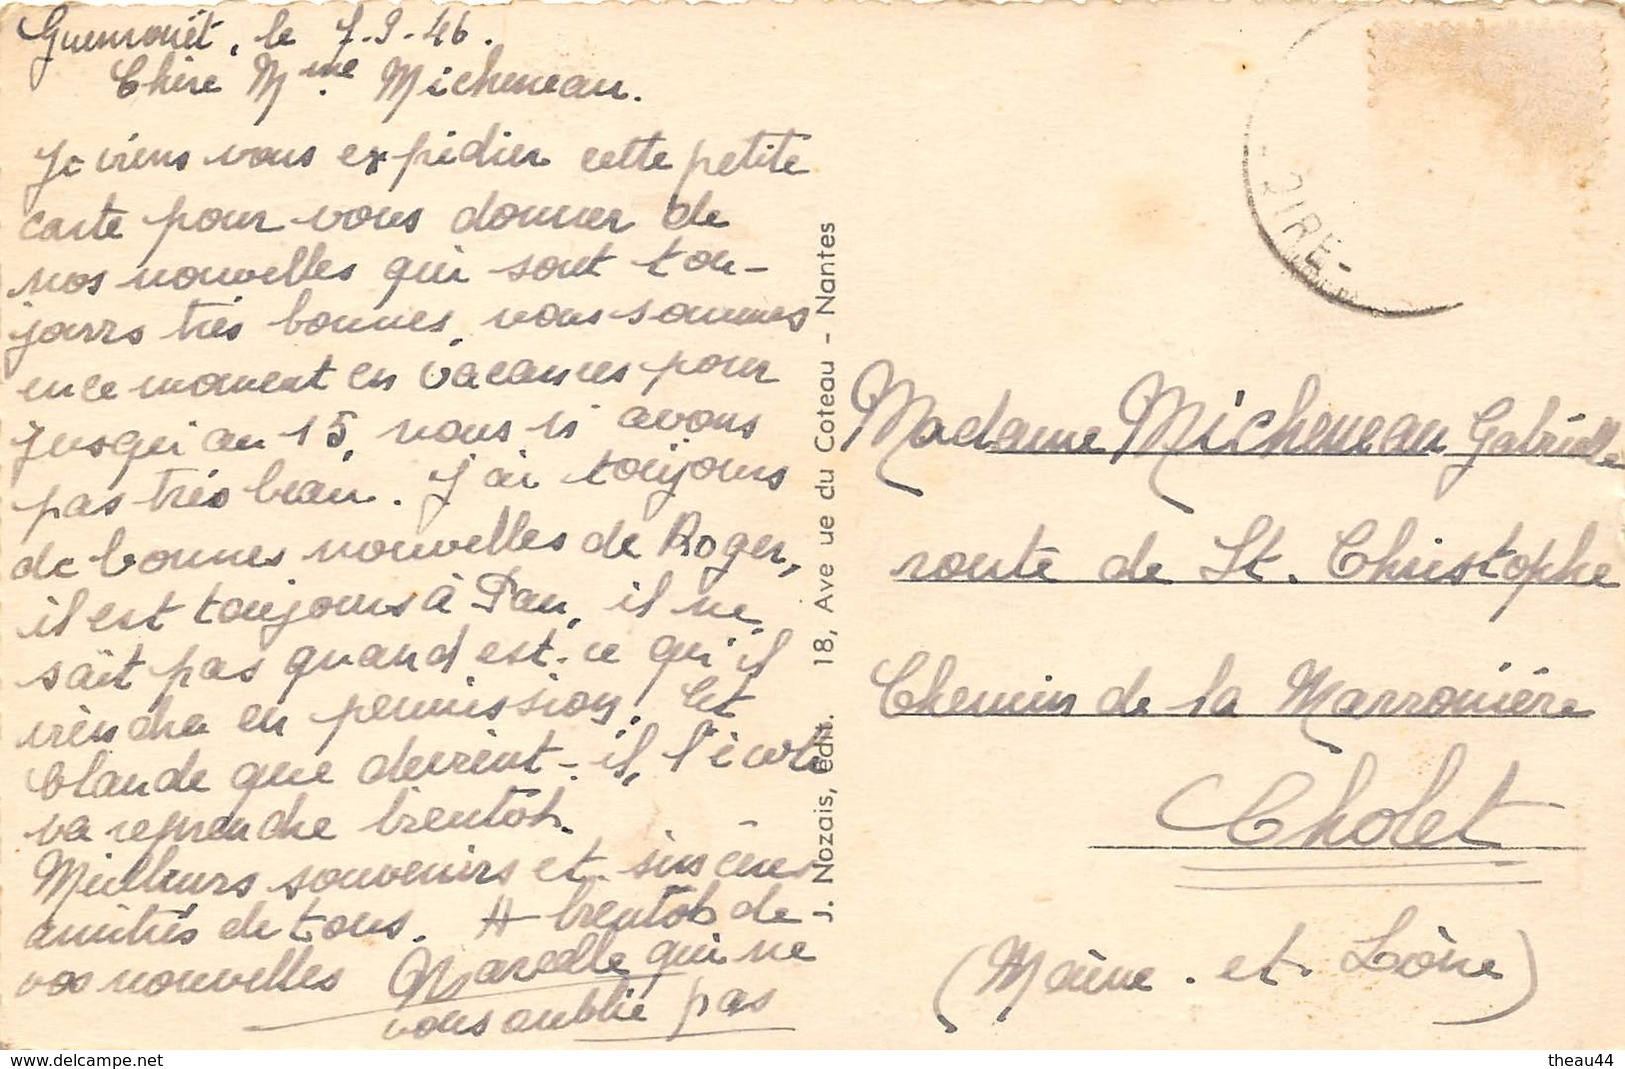 Guenrouët, le 7-9-46.
Chère Mme Micheneau.
Je viens vous expédier cette petite
carte pour vous donner de
nos nouvelles qui sont tou-
jours très bonnes, nous sommes
en ce moment en vacances pour
jusqu'au 15, nous n avons
pas très beau. J'ai toujours
de bonnes nouvelles de Roger,
il est toujours à Pau, il ne
sait pas quand est-ce qu'il
viendra en permission. Et
Claude que devient-il, l'école
va reprendre bientôt.
Meilleurs souvenirs et sincères
amitiés de tous. A bientôt de
vos nouvelles Marcelle qui ne
vous oublie pas
J. Nozais, édit. 18, Ave ue du Coteau - Nantes
OIRE-
Madame Micheneau Gabrielle
route de St. Christophe
Chemin de la Marronière
Cholet
(Maine-et-Loire)
www.delcampe.net
theau44